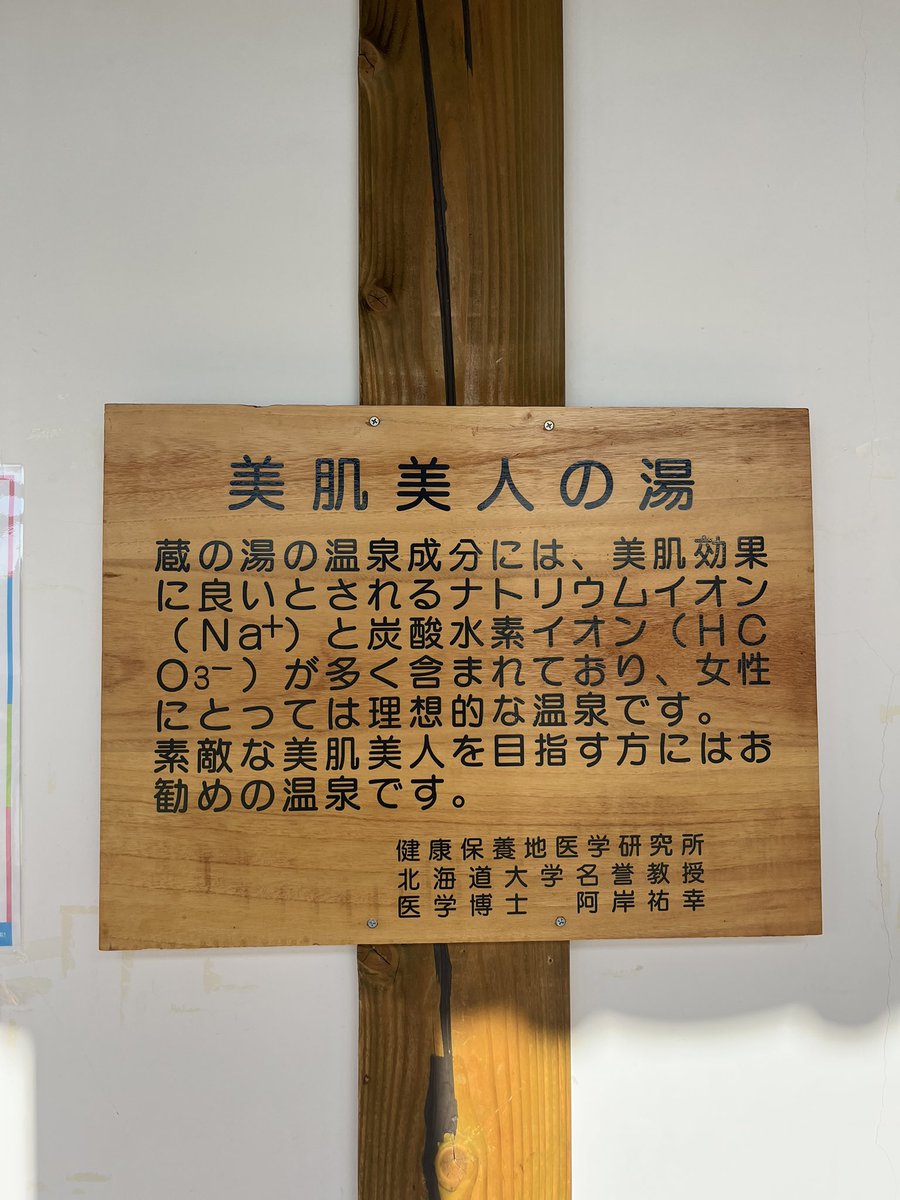 美肌美人の湯
蔵の湯の温泉成分には、美肌効果
に良いとされるナトリウムイオン
（Na⁺）と炭酸水素イオン（HC
O₃⁻）が多く含まれており、女性
にとっては理想的な温泉です。
素敵な美肌美人を目指す方にはお
勧めの温泉です。
健康保養地医学研究所
北海道大学名誉教授
医学博士　阿岸祐幸